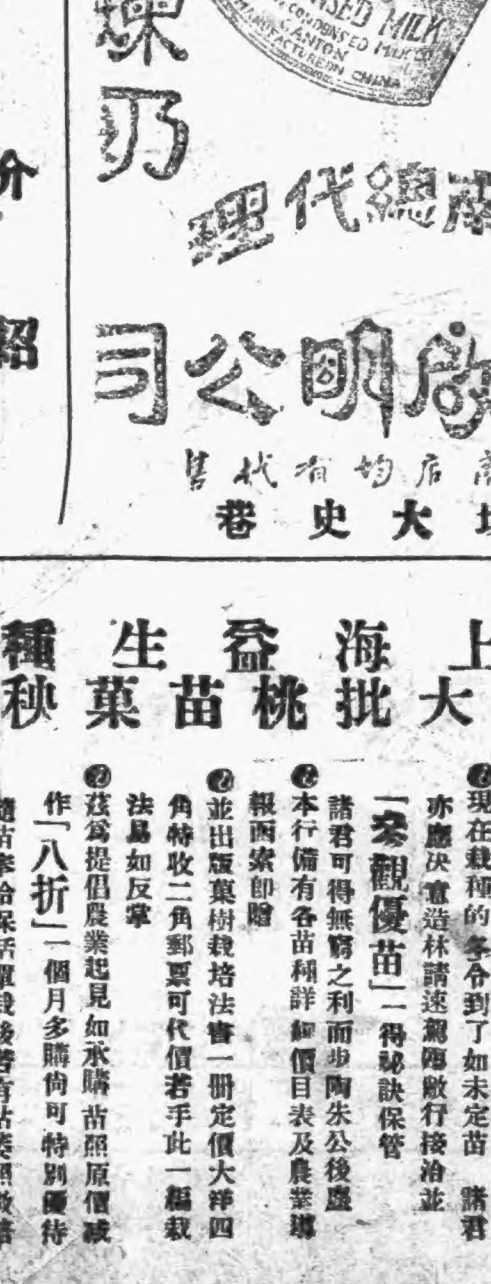 介
紹
煉
乃
NSED MILK
CONDENSED MILK CO
CANTON
MANUFACTURED IN CHINA
理代總
司公明啟
售代有均店
巷史大
種生益海上
秧菓苗桃批大
現在栽種的冬令到了如未定苗 諸君
亦應決意造林請速駕臨敝行接洽並
「來觀優苗」一得祕訣保管
諸君可得無窮之利而步陶朱公後塵
本行備有各苗種詳細價目表及農業導
報函索即贈
並出版菓樹栽培法書一冊定價大洋四
角特收二角郵票可代價若手此一編栽
法易如反掌
茲爲提倡農業起見如承購苗照原價減
作「八折」一個月多購尚可特別優待